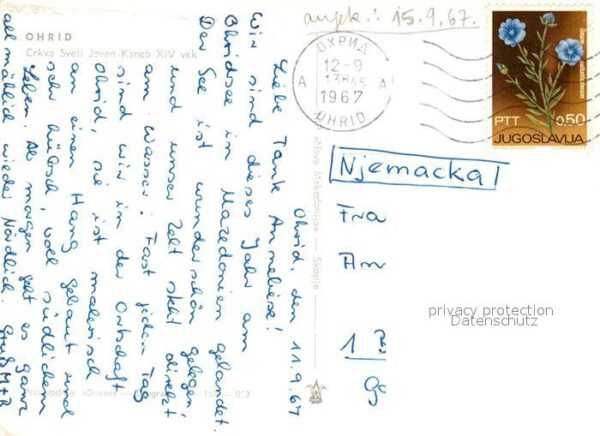 OHRID
Crkva Sveti Jovan Kaneo XIV vek
angek.: 15.9.67.
ОХРИД
12-9
1967
OHRID
A A
PTT 0.50
JUGOSLAVIJA
Ohrid, den 11.9.67
Liebe Tante Anneliese!
Wir sind dieses Jahr am
Ohridsee in Mazedonien gelandet.
Der See ist wunderschön gelegen
und unser Zelt steht direkt
am Wasser. Fast jeden Tag
sind wir in der Ortschaft
Ohrid, sie ist malerisch
an einen Hang gebaut und
sehr hübsch, voll südlichem
Leben. Ab morgen geht es ganz
allmählich wieder Nördlich. Gruß M+R
»Nova Makedonija« — Skopje
Njemacka!
Fra
Am
1
privacy protection
Datenschutz